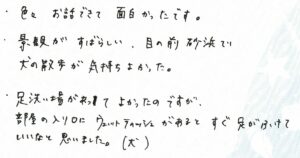 ・色々 お話できて 面白かったです。
・景観が すばらしい、目の前 砂浜で
犬の散歩が 気持ちよかった。
・足洗い場があって よかったのですが、
部屋の入り口に ウェットティッシュがあると すぐ 足がふけて
いいなと 思いました。(犬)